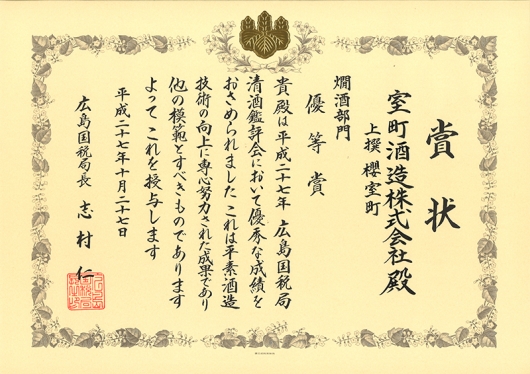 賞状
室町酒造株式会社殿
上撰 櫻室町
燗酒部門
優等賞
貴殿は平成二十七年 広島国税局
清酒鑑評会において優秀な成績を
おさめられました これは平素酒造
技術の向上に専心努力された成果であり
他の模範とすべきものであります
よって これを授与します
平成二十七年十月二十七日
広島国税局長 志村 仁